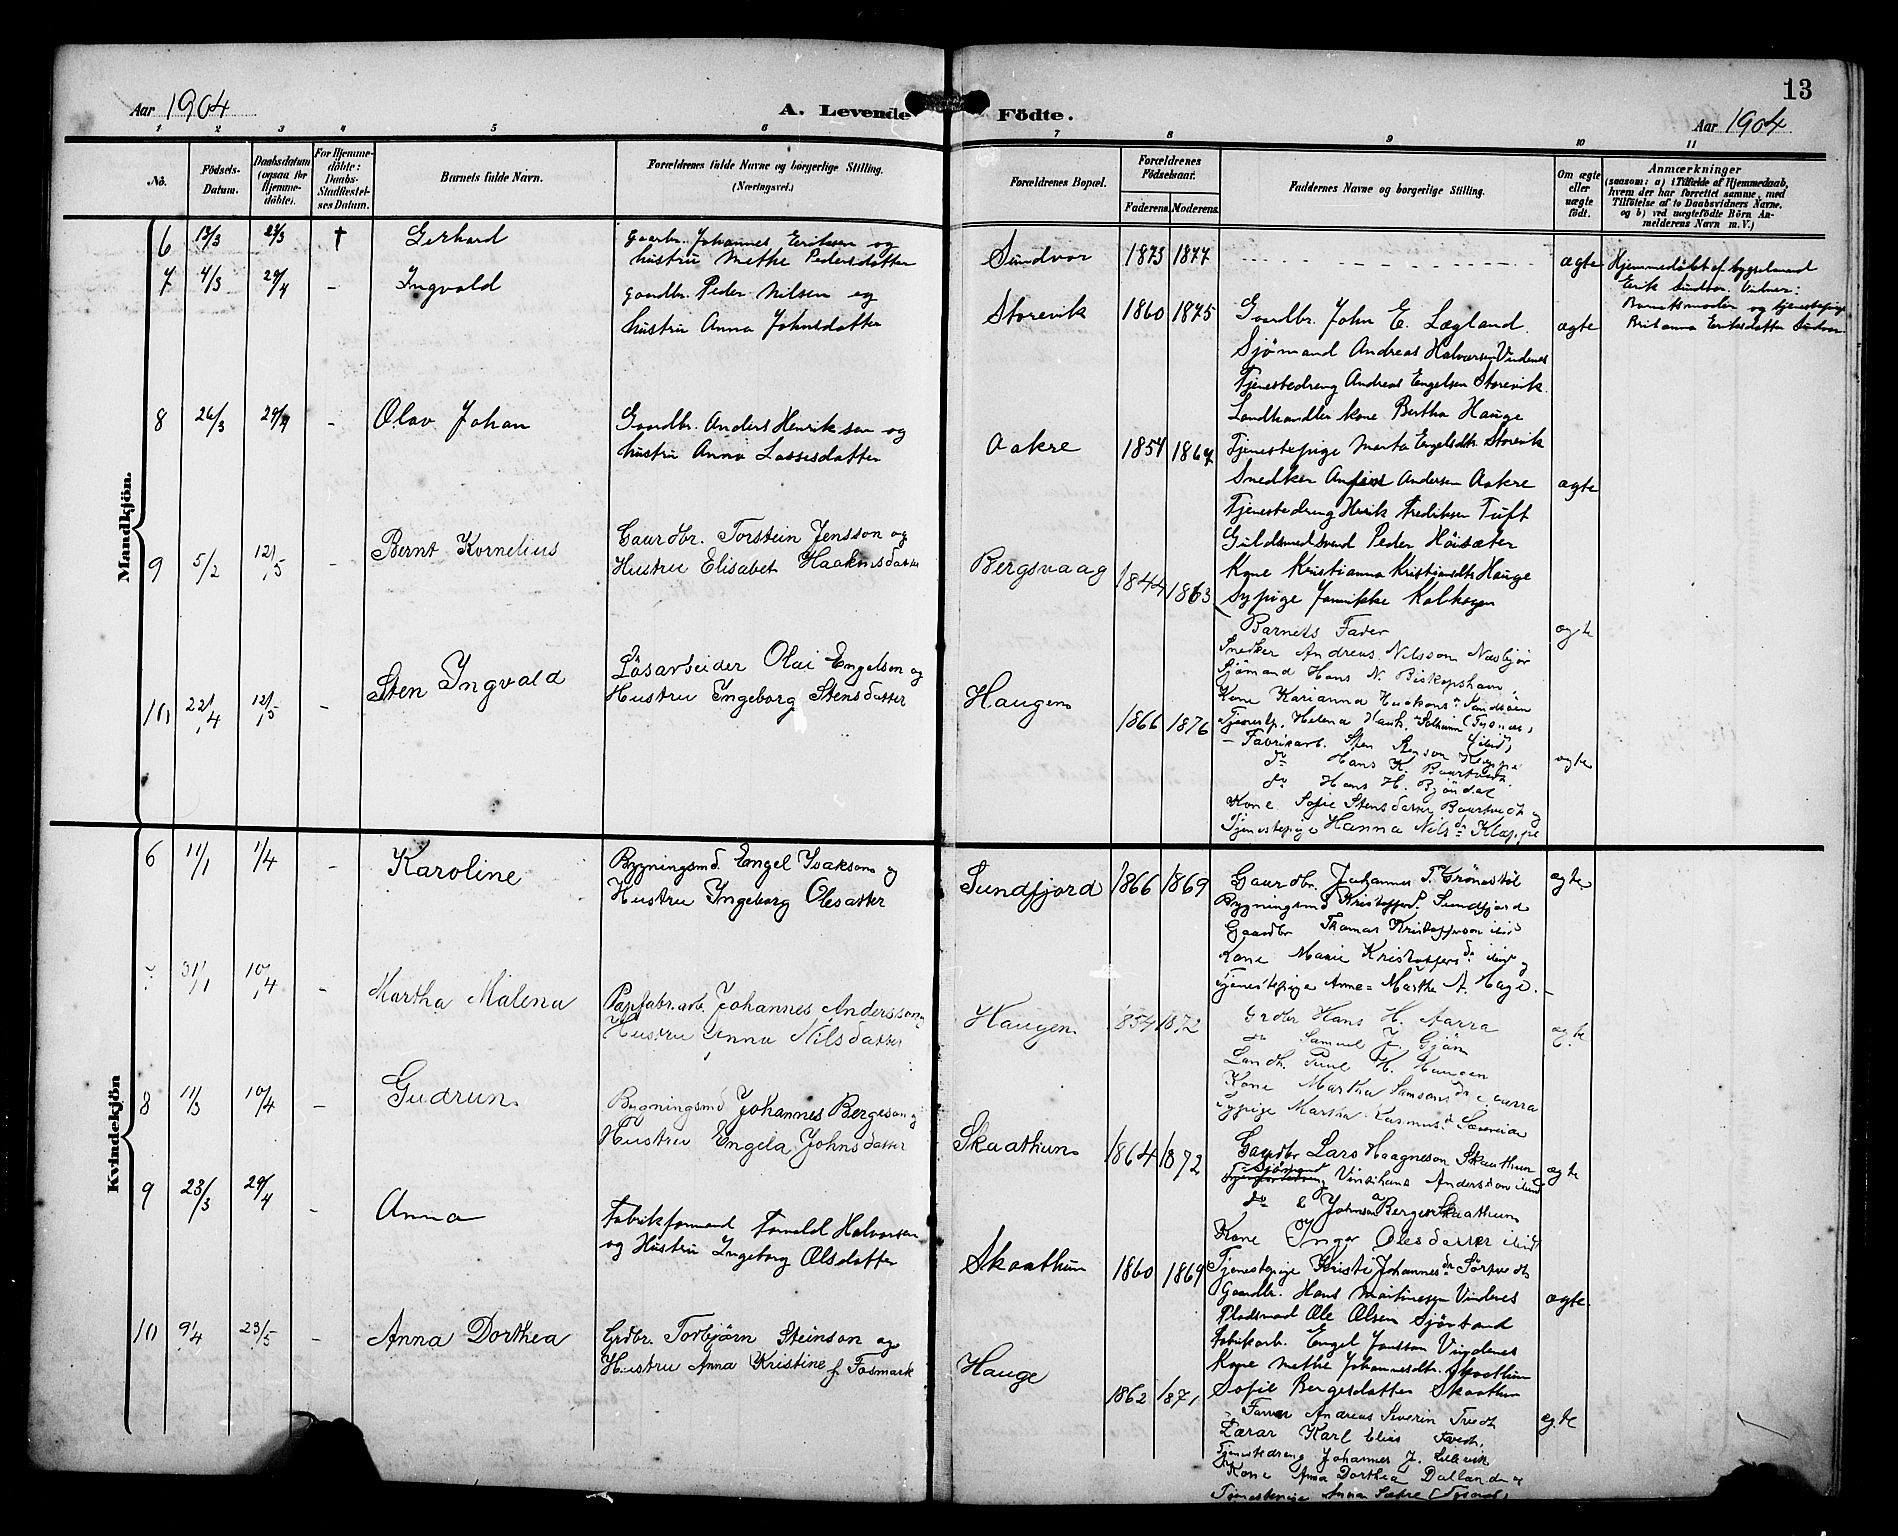 Aar 1904
A. Levende Födte.
13
Aar 1904
1 2 3 4 5 6 7 8 9 10 11
No.
Födsels-Datum.
Daabsdatum (ogsaa for Hjemmedöbte).
For Hjemmedöbte: Daabs-Stadfæstelses Datum.
Barnets fulde Navn.
Forældrenes fulde Navne og borgerlige Stilling.
(Næringsvei.)
Forældrenes Bopæl.
Forældrenes Födselsaar.
Faderens. Moderens.
Faddernes Navne og borgerlige Stilling.
Om ægte eller uægte födt.
Anmærkninger
(saasom: a) i Tilfælde af Hjemmedaab,
hvem der har forrettet samme, med
Tilföielse af to Daabsvidners Navne,
og b) ved uægtefödte Börn An-
melderens Navn m. V.)
Mandkjön.
6 13/3 †
Gerhard
Gaardbr. Johannes Eriksen og
hustru Methe Pedersdatter
Sundvor 1873 1877
ægte
Hjemmedøbt af bygselmand
Erik Sundvor. Vidner:
Barnets moder og tjenestepige
Britanna Eriksdatter Sundvor
7 4/3 29/4 -
Ingvald
Gaardbr. Peder Nilsen og
hustru Anna Johnsdatter
Storevik 1860 1875
Gaardbr. John E. Lægland.
Sjømand Andreas Halvorsen Vindenes
Tjenestedreng Andreas Engelsen Storevik
Landhandler kone Bertha Hauge
Tjenestepige Marta Engelsdtr. Storevik
ægte
8 26/3 29/4 -
Olav Johan
Gaardbr. Anders Henriksen og
hustru Anna Lassesdatter
Aakre 1854 1864
Snedker Andersen Aakre
Tjenestedreng Henrik Fredriksen Tuft
Guldsmedsvend Peder Høisæter
Kone Kristianna Kristjansdtr Hauge
Sypige Jannikke Kolhagen
ægte
9 5/2 12/5 -
Bernt Kornelius
Gaardbr. Torstein Jensson og
Hustru Elisabet Haaknsdatter
Bergsvaag 1844 1863
Barnets Fader
Snedker Andreas Nilsson Næsbjør
Sjømand Hans N. Biskopshavn
Kone Karianna Haakons
Tjenestp. Helena Hauk.
ægte
10 22/4 12/5 -
Sten Ingvald
Løsarbeider Olai Engelsen og
Hustru Ingeborg Stensdatter
Haugen 1866 1876
Fabrikarb. Sten
do Hans K.
do Hans H. Bjöndal
Kone Sofie Stensdatter og
Tjenestepige Hanna Nilsda Kleppe
ægte
Kvindekjön
6 11/1 1/4 -
Karoline
Bygningsmd Engel Isakson og
Hustru Ingeborg Olesdatter
Sundfjord 1866 1869
Gaardbr. Johannes T. Grönestöl
Bygningsmd Kristoffer Sundfjord
Gaardbr Thomas Kristoffersen ibid
Kone Marie Kristoffersda ibid og
Tjenestepige Anne-Marthe A. Hage.
ægte
7 31/1 10/4 -
Martha Malena
Papfabr.arb. Johannes Andersson og
Hustru Anna Nilsdatter
Haugen 1854 1872
Grdbr Hans H. Aarra
do Samuel J. Gjøn
Landh. Paul H. Haugen
Kone Martha Samsonsda Aarra
Sypige Martha Rasmusd.
ægte
8 11/3 10/4 -
Gudrun
Bygningsmd Johannes Bergeson og
Hustru Engela Johnsdatter
Skaathun 1864 1872
Gaardbr Lars Haagneson Skaathun
Sjömand Andersson ibid
do Johnson Skaathun
Kone Inger Olesdatter ibid
Tjenestepige Kristi Johannesda Sörtvedt
ægte
9 23/3 29/4 -
Anna
Fabrikformand Torvald Halvorsen
og Hustru Ingeborg Olsdatter
Skaathun 1860 1869
Gaardbr. Hans Martinesen Vindenes
Pladsmad Ole Olsen Sjövland
Fabrikarb. Engel Jonsson Vindenes
Kone Methe Johannesdtr. Skaathun
Sofie Bergesdatter Skaathun
ægte.
10 9/4 23/5 -
Anna Dorthea
Grdbr. Torbjörn Steinson og
Hustru Anna Kristine f. Fosmark
Hauge 1862 1871
Farver Andreas Severin Tvedt
Lærar Karl Elias Tvedt,
Tjenestedreng Johannes J. Lillevik
Kone Anna Dorthea Dalland og
Tjenestepige Anna Sætre (Tysnes)
ægte